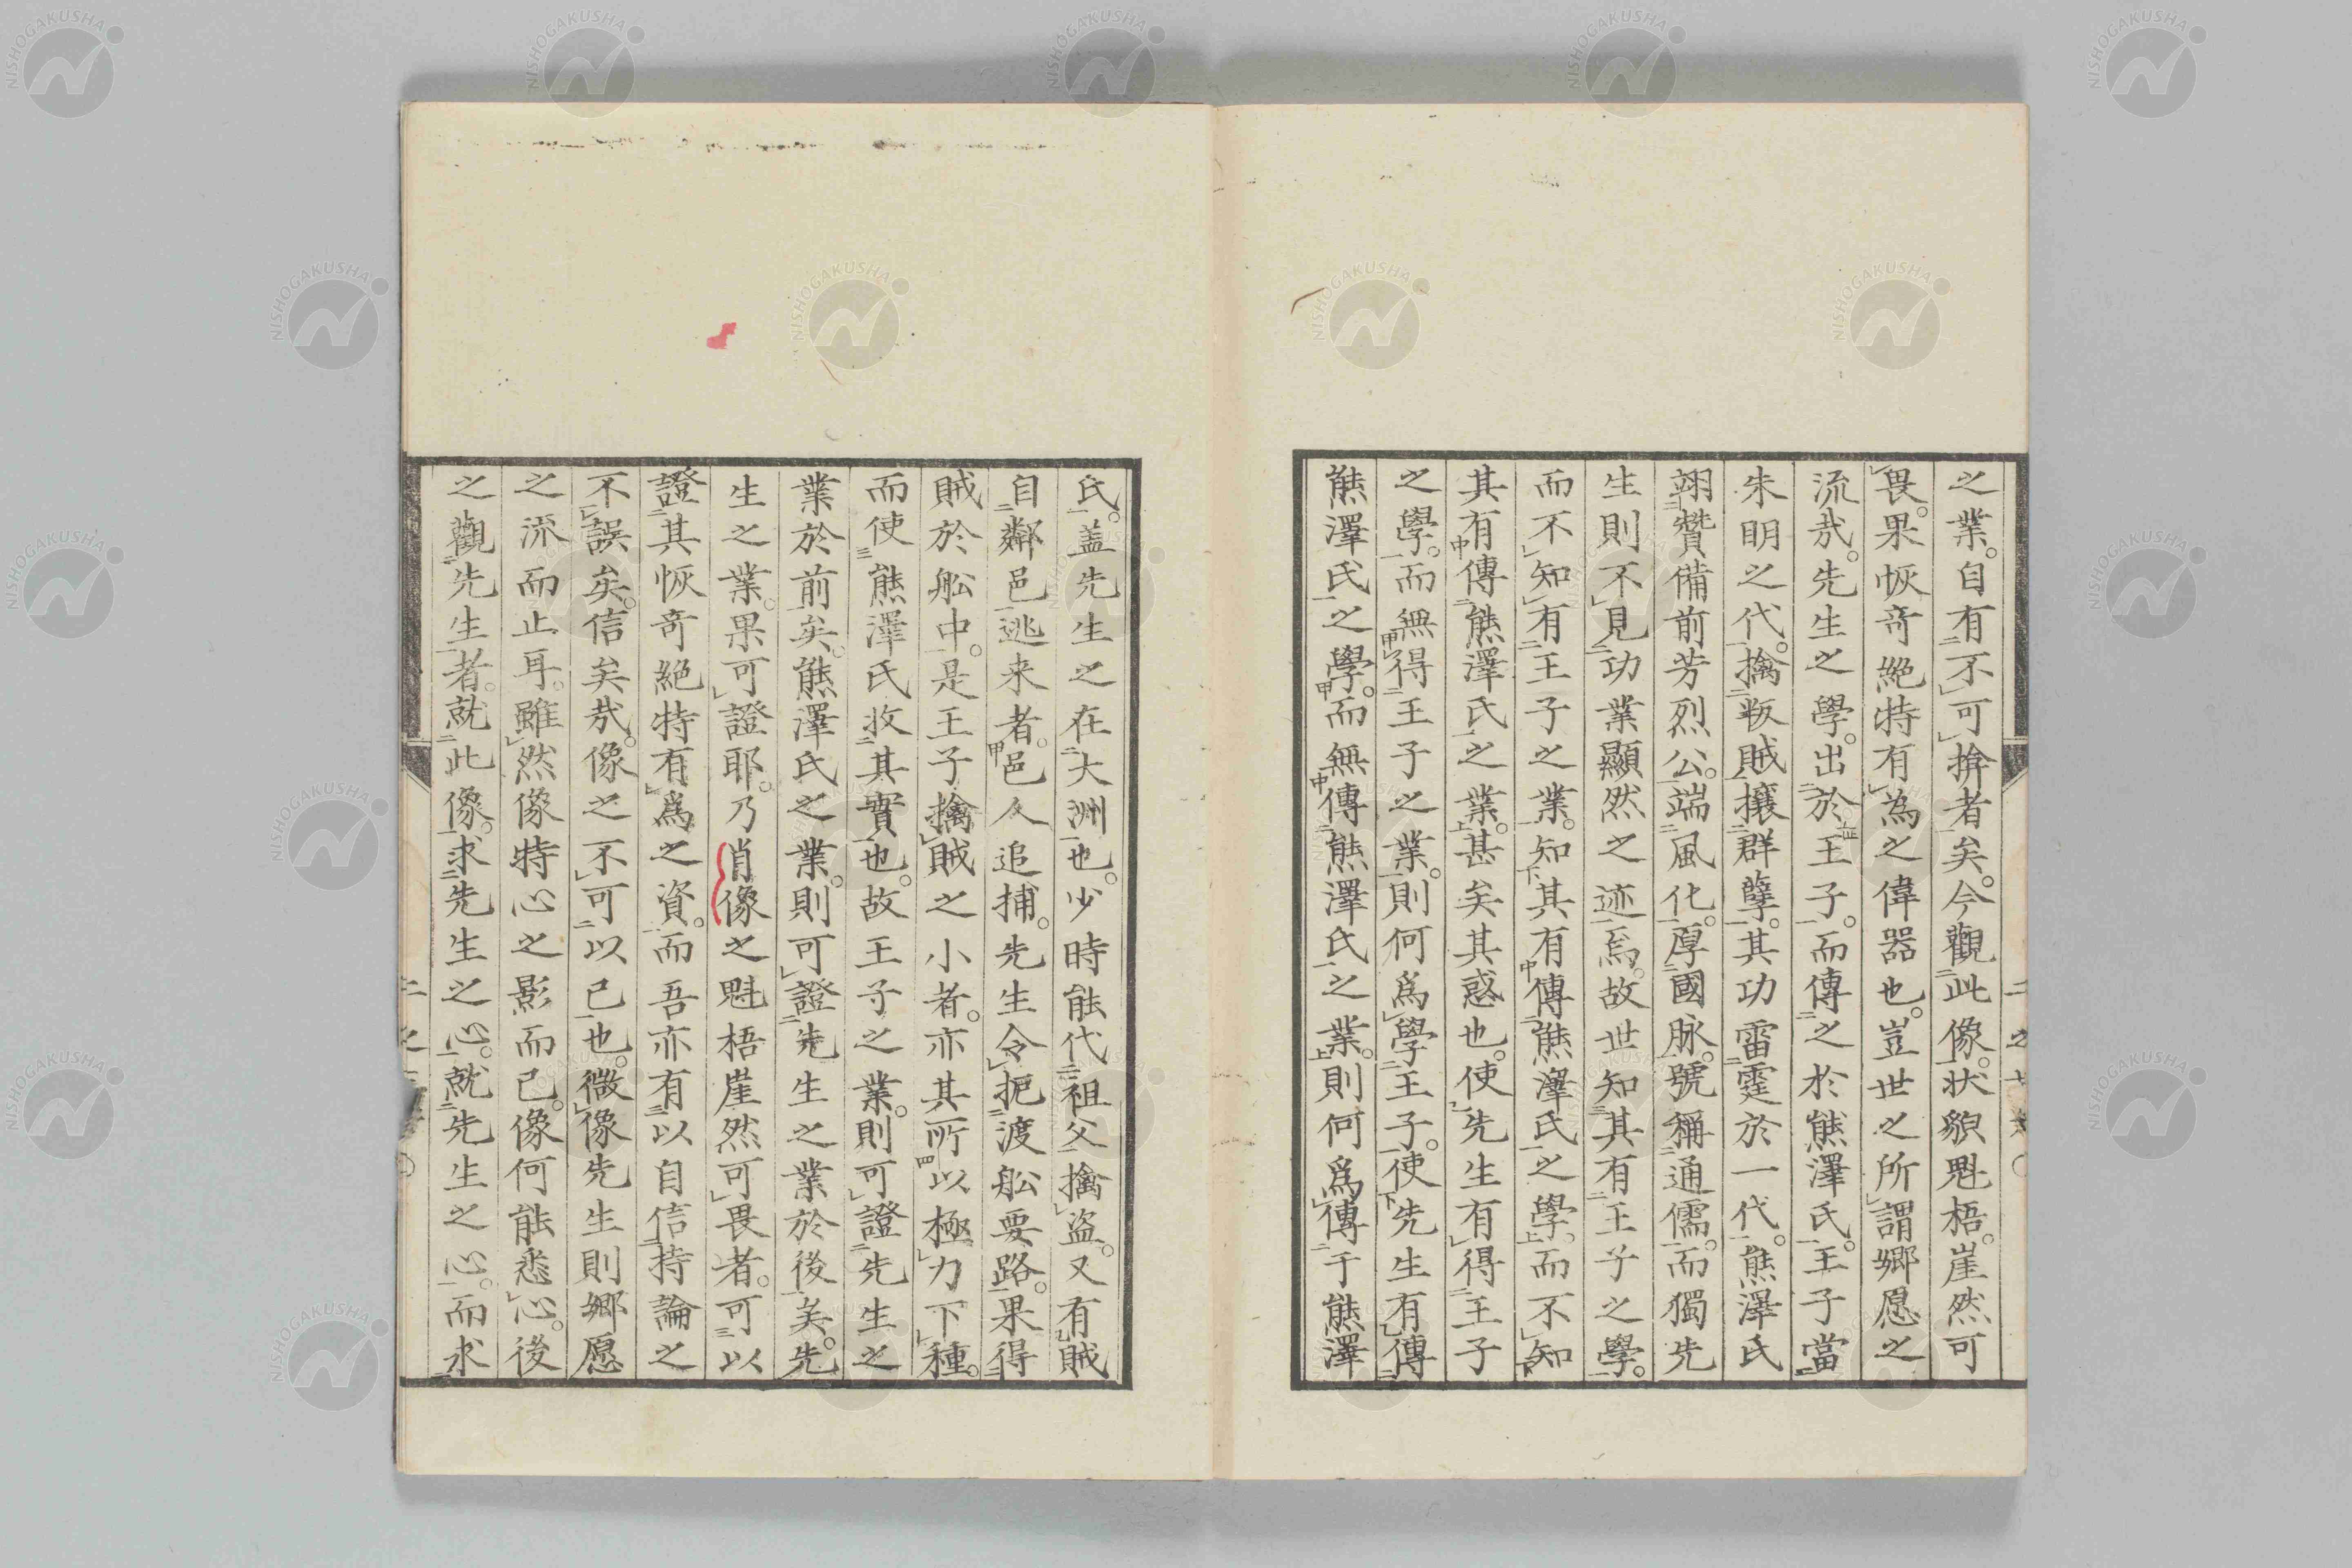 之業。自有不可揜者矣。今觀此像。狀貌魁梧。崖然可
畏。果恢奇絶特有為之偉器也。豈世之所謂郷愿之
流哉。先生之學。出於王子。而傳之於熊澤氏。王子當
朱明之代。擒叛賊攘群孽。其功雷霆於一代。熊澤氏
翊贊備前芳烈公。端風化。厚國脉。號稱通儒。而獨先
生則不見功業顯然之迹焉。故世知其有王子之學。
而不知有王子之業。知其有傳熊澤氏之學。而不知
其有傳熊澤氏之業。甚矣其惑也。使先生有得王子
之學。而無得王子之業。則何爲學王子。使先生有傳
熊澤氏之學。而無傳熊澤氏之業。則何爲傳于熊澤
氏。盖先生之在大洲也。少時能代祖父擒盗。又有賊
自鄰邑逃来者。邑人追捕。先生令扼渡舩要路。果得
賊於舩中。是王子擒賊之小者。亦其所以極力下種。
而使熊澤氏收其實也。故王子之業。則可證先生之
業於前矣。熊澤氏之業。則可證先生之業於後矣。先
生之業。果可證耶。乃肖像之魁梧崖然可畏者。可以
證其恢奇絶特有爲之資。而吾亦有以自信持論之
不誤矣。信矣哉。像之不可以已也。微像先生則郷愿
之流而止耳。雖然像特心之影而已。像何能悉心。後
之觀先生者。就此像。求先生之心。就先生之心。而求
NISHOGAKUSHA